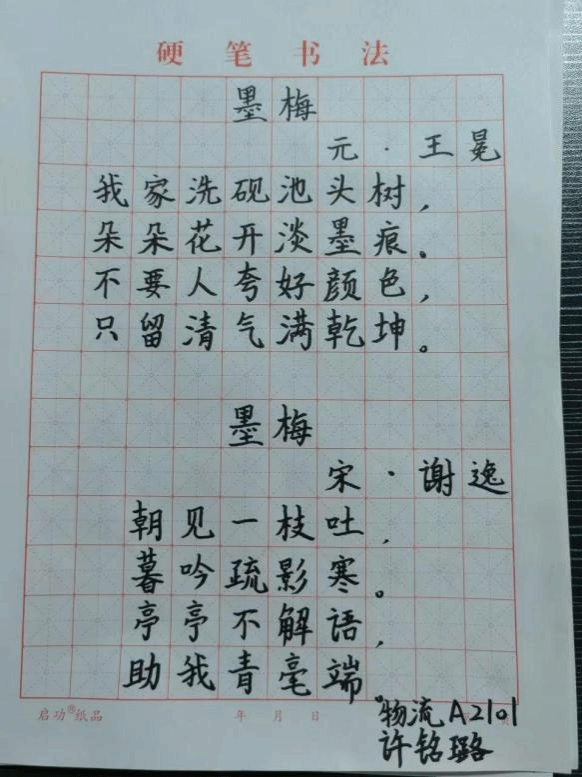 硬笔书法
墨梅
元·王冕
我家洗砚池头树，
朵朵花开淡墨痕。
不要人夸好颜色，
只留清气满乾坤。
墨梅
宋·谢逸
朝见一枝吐，
暮吟疏影寒。
亭亭不解语，
助我青毫端
启功®纸品
年 月 日
物流A2101
许铭璐